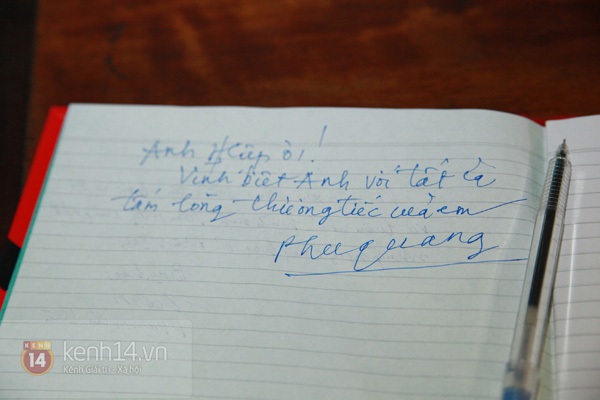 Anh Hiệp ơi!
Vĩnh biệt Anh với tất cả
tấm lòng thương tiếc của em
Phú Quang
KÊNH
14
kenh14.vn
Kênh Giải trí - Xã hội